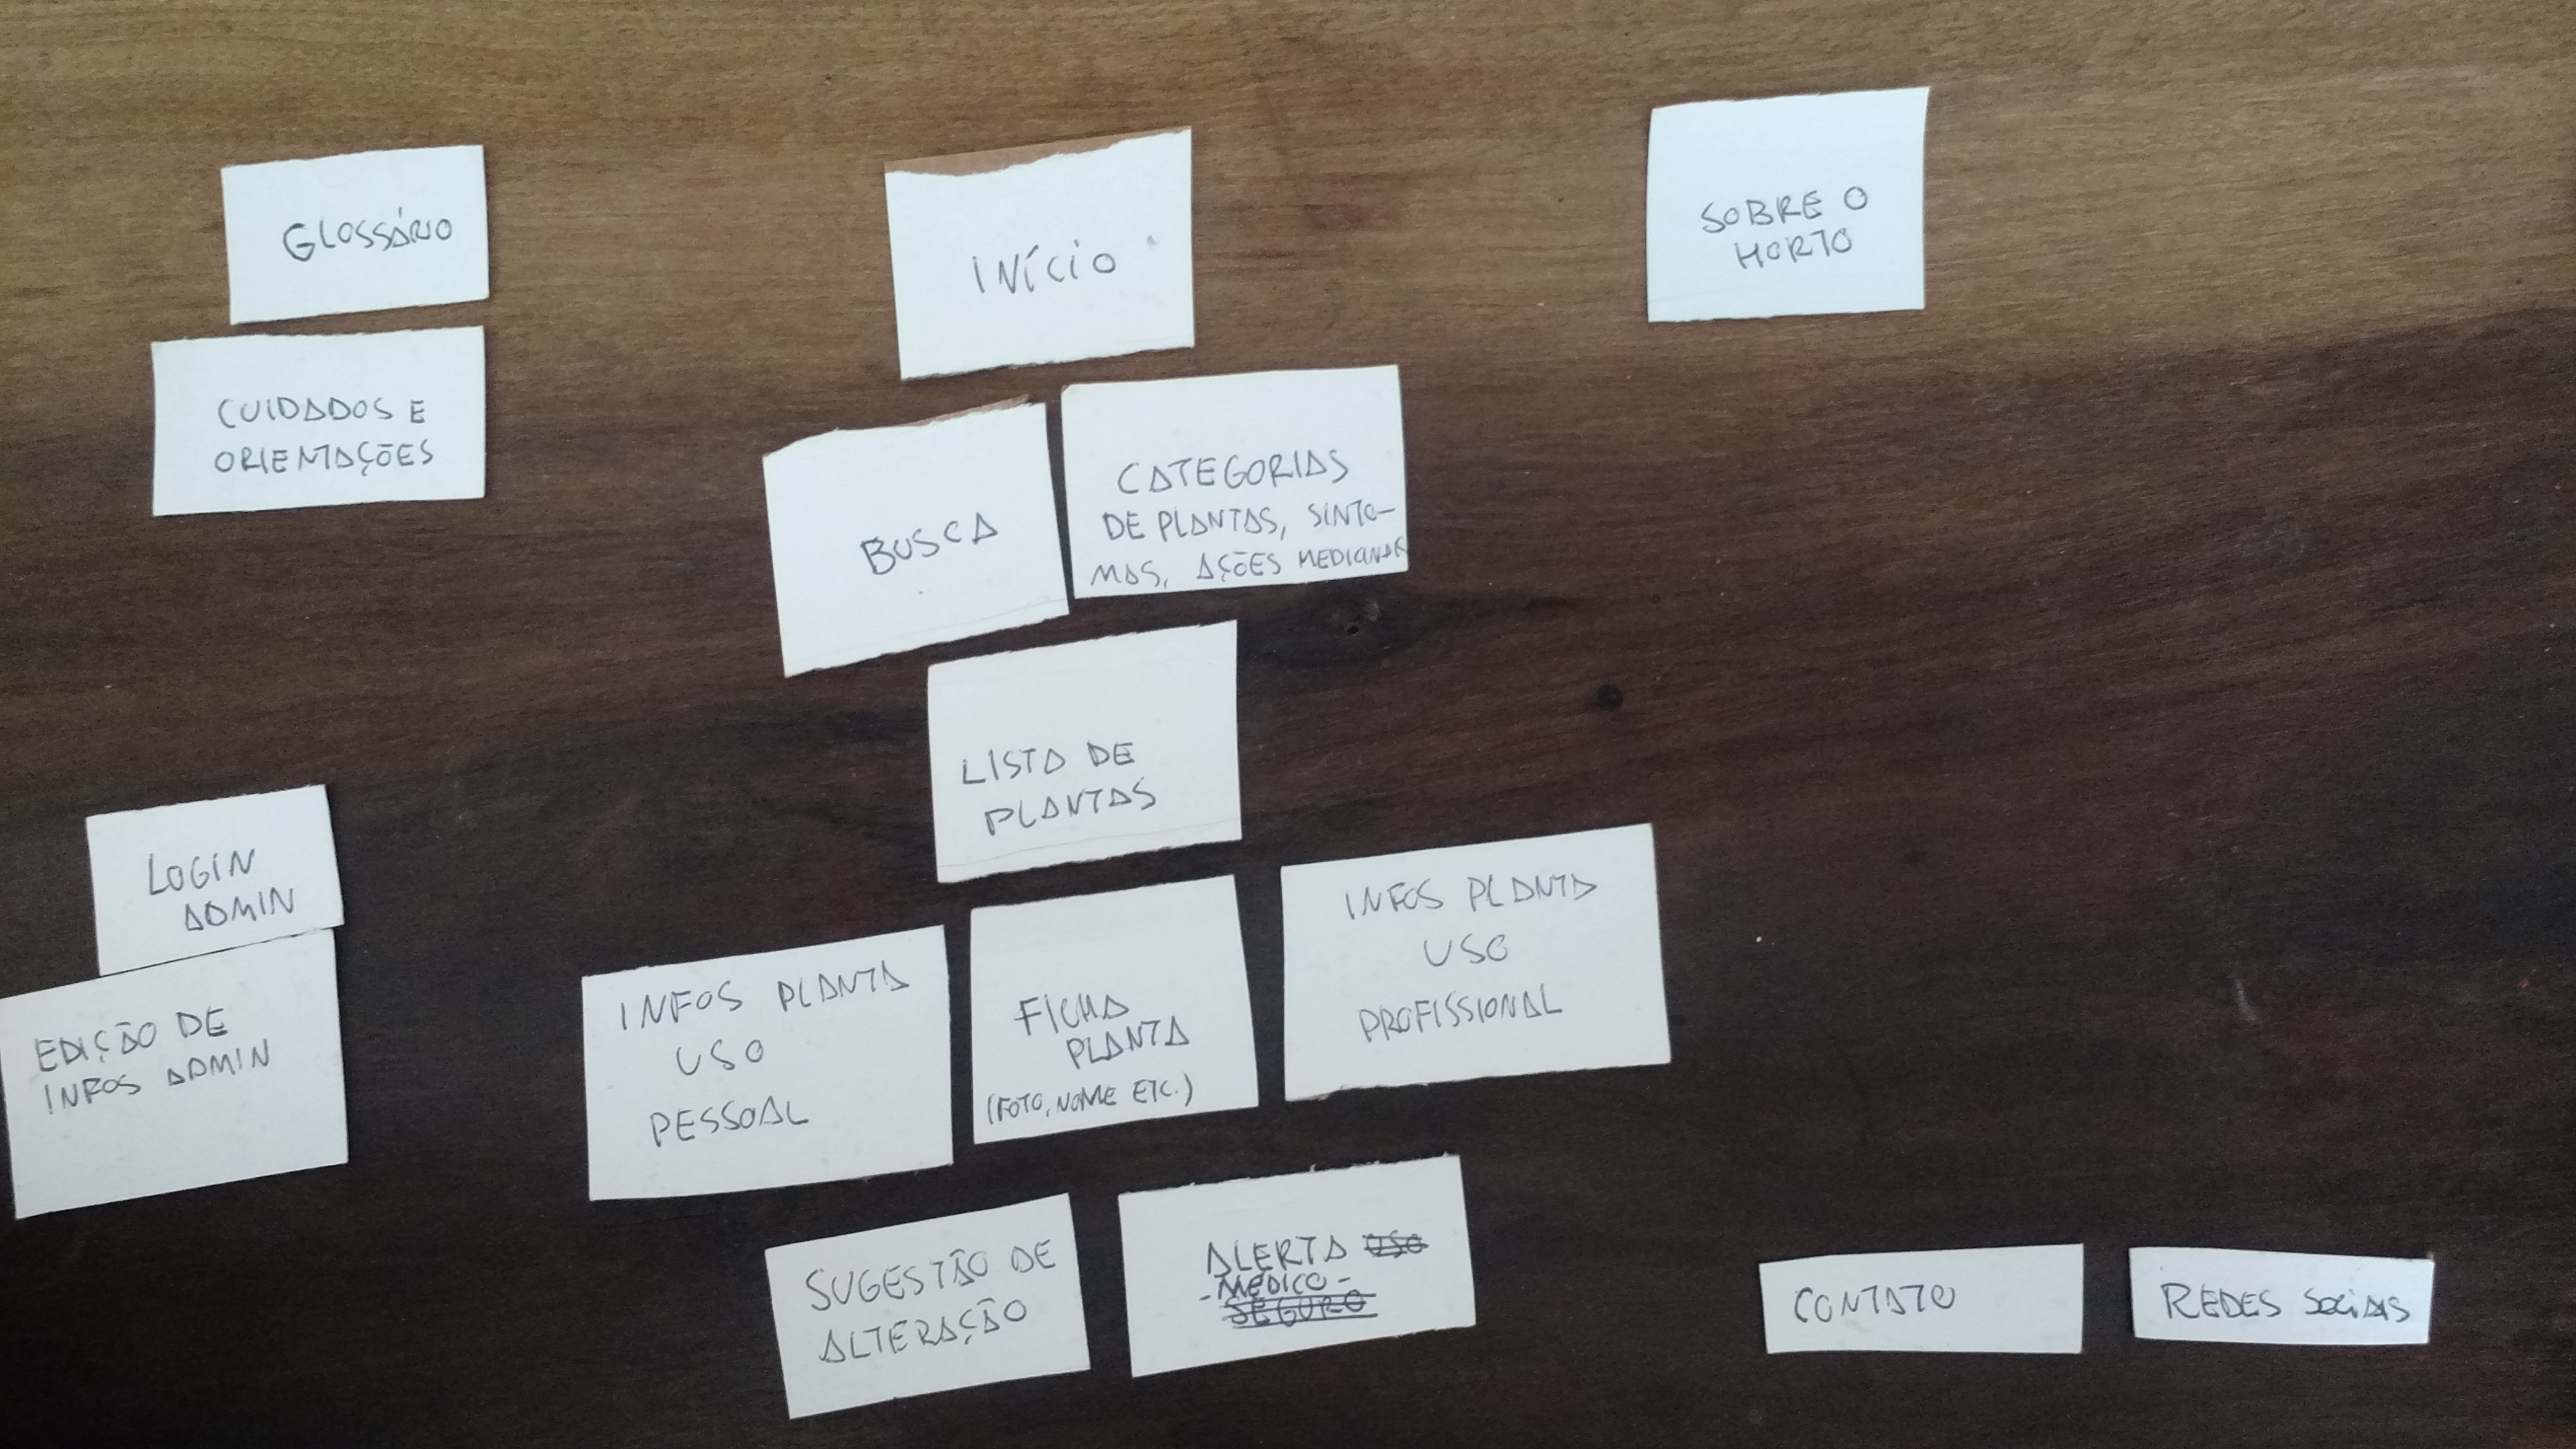 GLOSSÁRIO
INÍCIO
SOBRE O
HORTO
CUIDADOS E
ORIENTAÇÕES
BUSCA
CATEGORIAS
DE PLANTAS, SINTO-
MAS, AÇÕES MEDICINAIS
LISTA DE
PLANTAS
LOGIN
ADMIN
EDIÇÃO DE
INFOS ADMIN
INFOS PLANTA
USO
PESSOAL
FICHA
PLANTA
(FOTO, NOME ETC.)
INFOS PLANTA
USO
PROFISSIONAL
SUGESTÃO DE
ALTERAÇÃO
ALERTA USO
-MÉDICO-
SEGURO
CONTATO
REDES SOCIAIS